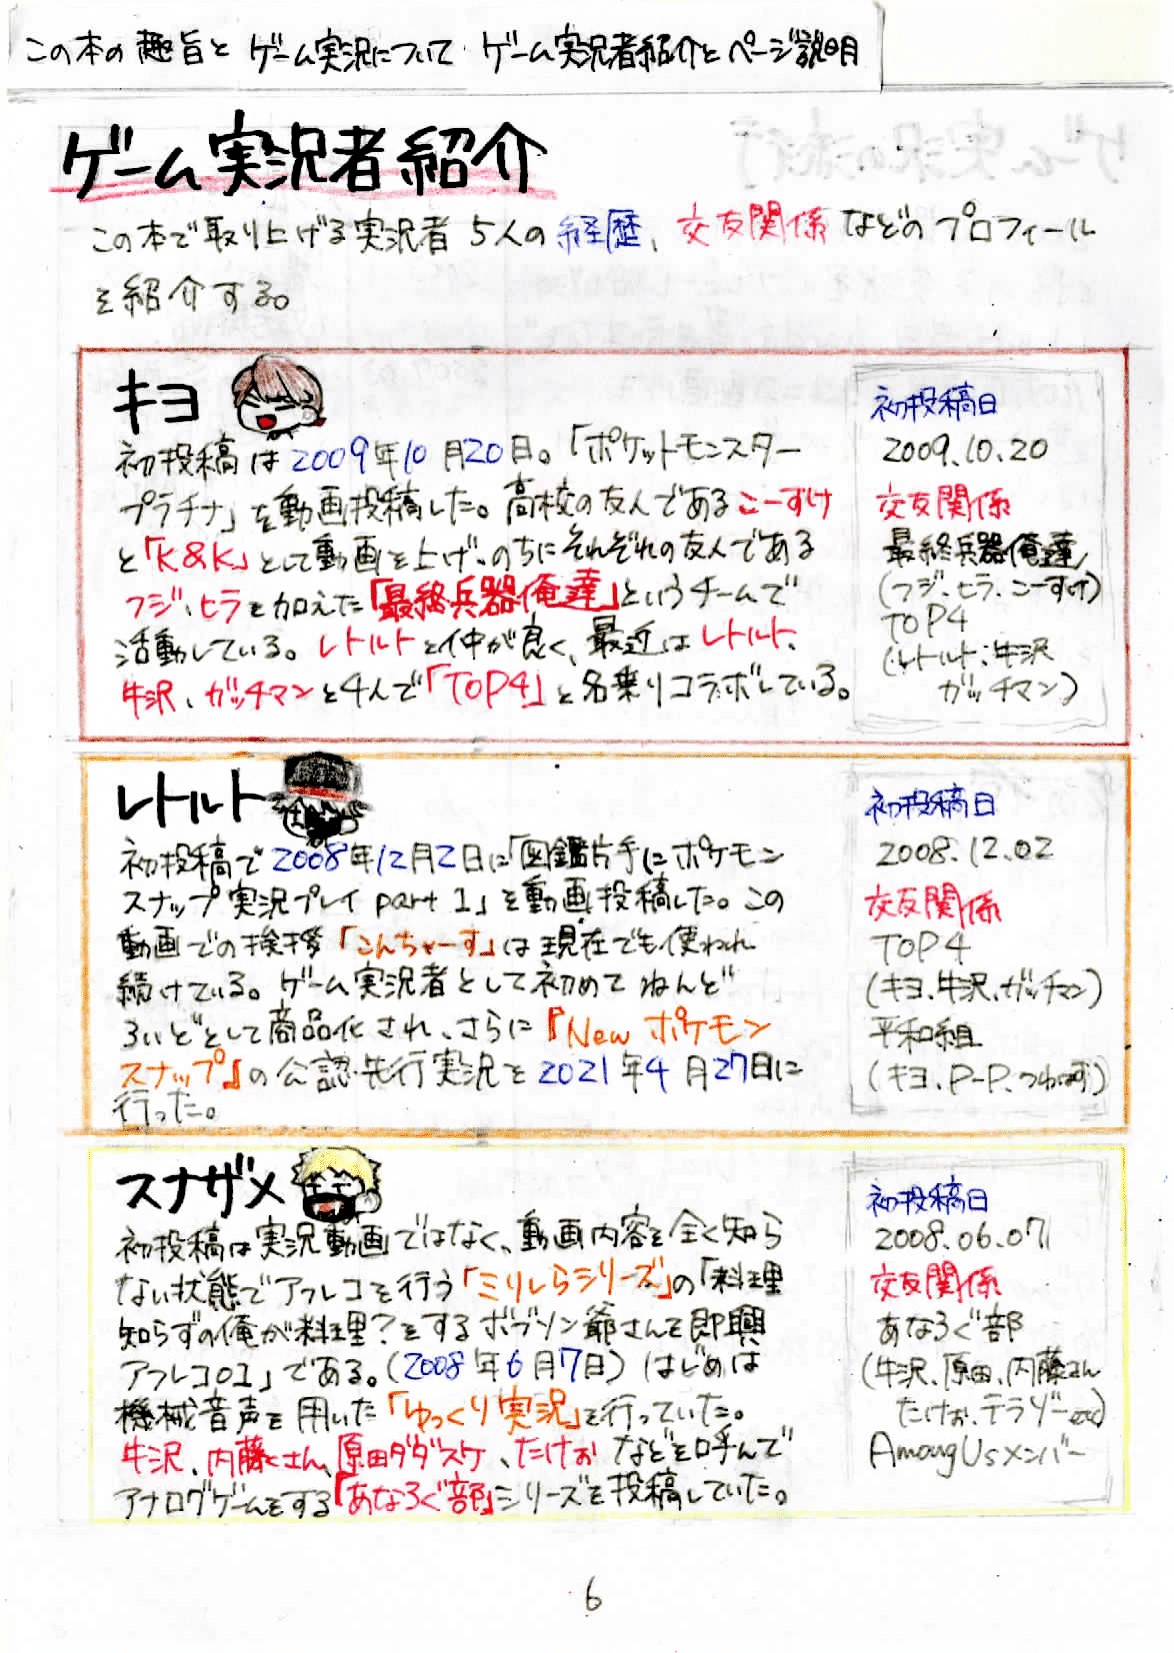 この本の趣旨と ゲーム実況について ゲーム実況者紹介とページ説明
ゲーム実況者紹介
この本で取り上げる実況者5人の経歴、交友関係などのプロフィール
を紹介する。
キヨ
初投稿は2009年10月20日。「ポケットモンスター
プラチナ」を動画投稿した。高校の友人であるこーすけ
と「K&K」として動画を上げ、のちにそれぞれの友人である
フジ、ヒラを加えた「最終兵器俺達」というチームで
活動している。レトルトと仲が良く、最近はレトルト、
牛沢、ガッチマンと4人で「TOP4」と名乗りコラボしている。
初投稿日
2009.10.20
交友関係
最終兵器俺達
(フジ、ヒラ、こーすけ)
TOP4
(レトルト、牛沢
ガッチマン)
レトルト
初投稿で2008年12月2日に「図鑑片手にポケモン
スナップ実況プレイpart1」を動画投稿した。この
動画での挨拶「こんちゃーす」は現在でも使われ
続けている。ゲーム実況者として初めてねんど
ろいどとして商品化され、さらに『New ポケモン
スナップ』の公認先行実況を2021年4月27日に
行った。
初投稿日
2008.12.02
交友関係
TOP4
(キヨ、牛沢、ガッチマン)
平和組
(キヨ、P-P、つわはす)
スナザメ
初投稿は実況動画ではなく、動画内容を全く知ら
ない状態でアフレコを行う「ミリしらシリーズ」の「料理
知らずの俺が料理?をするボブソン爺さんを即興
アフレコ01」である。(2008年6月7日) はじめは
機械音声を用いた「ゆっくり実況」を行っていた。
牛沢、内藤さん、原田ダダスケ、たけぉ などを呼んで
アナログゲームをする「あなろぐ部」シリーズを投稿していた。
初投稿日
2008.06.07
交友関係
あなろぐ部
(牛沢、原田、内藤さん
たけぉ、テラゾーetc)
AmongUsメンバー
6